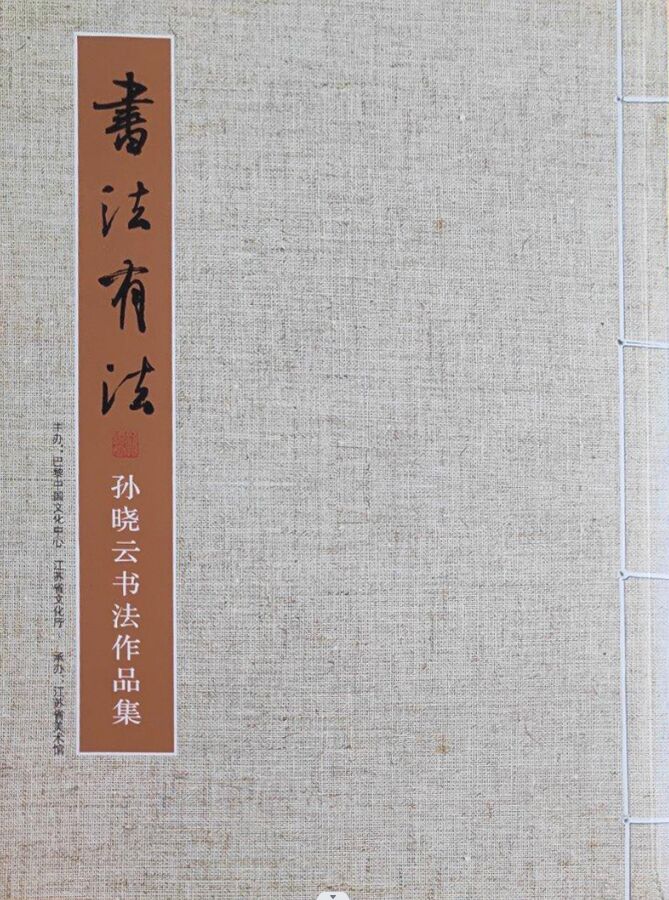 書法有法
孙晓云书法作品集
主办：巴黎中国文化中心 江苏省文化厅 承办：江苏省美术馆